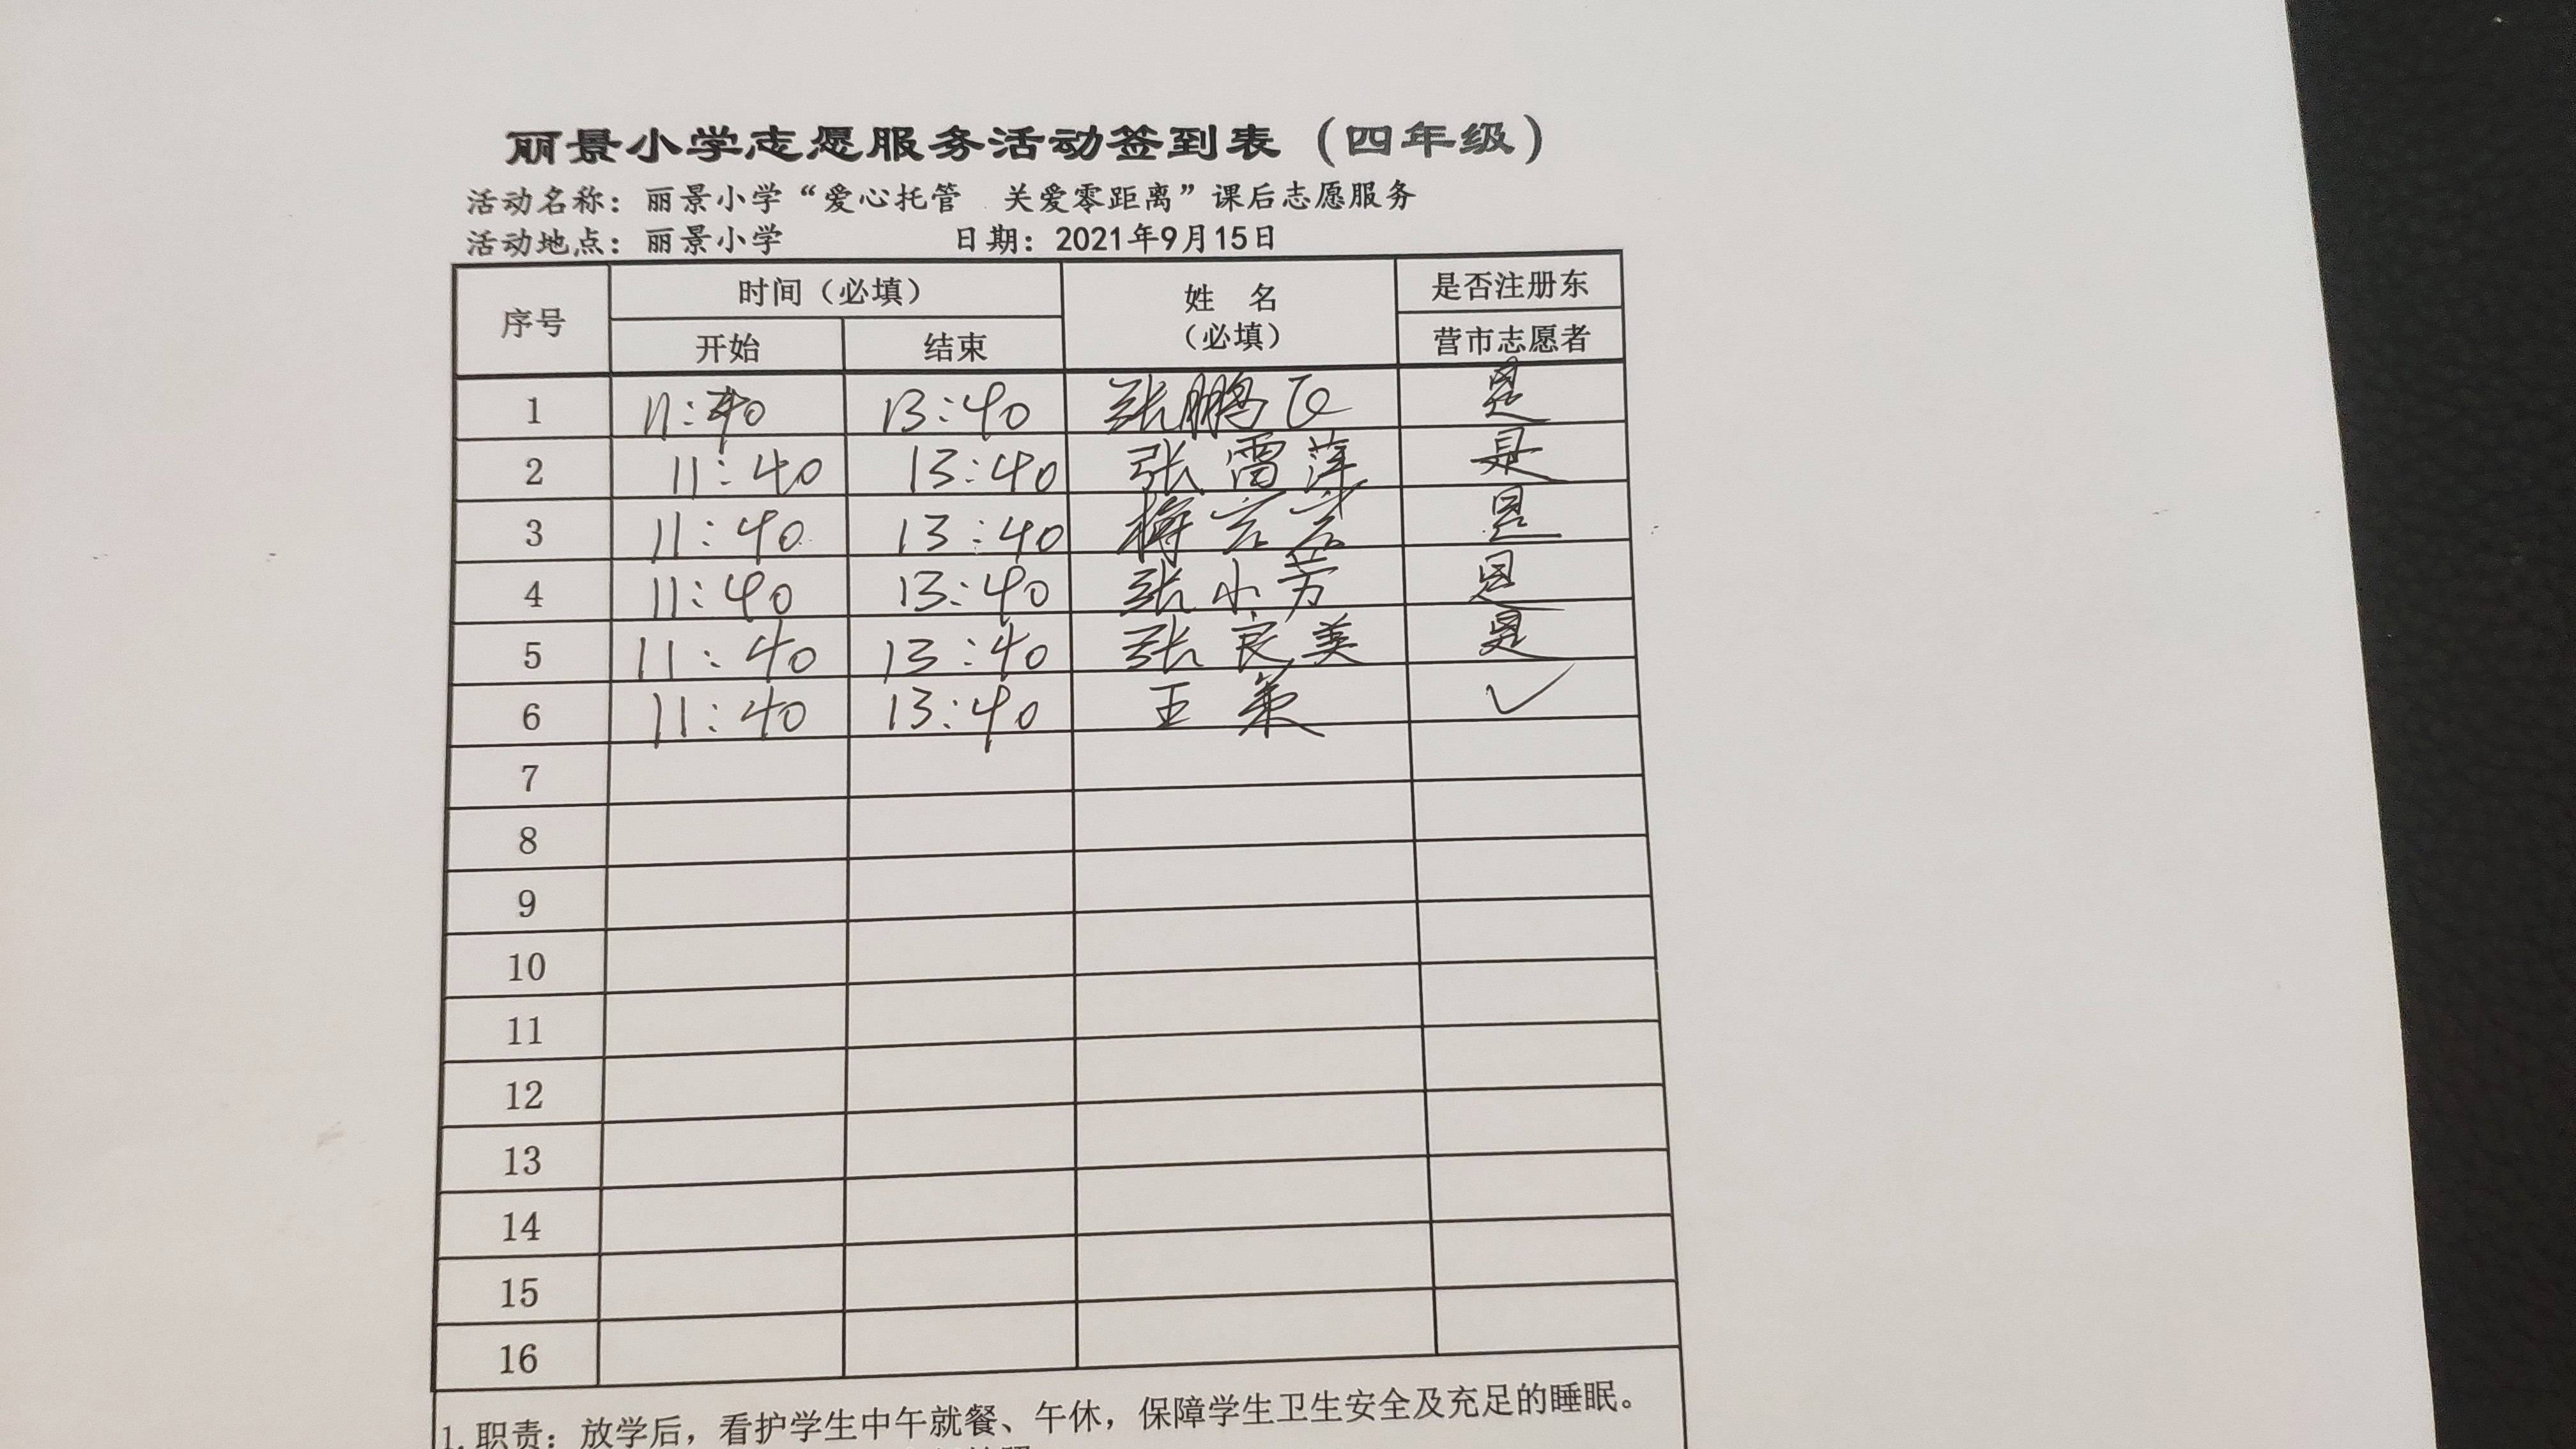 丽景小学志愿服务活动签到表（四年级）
活动名称：丽景小学“爱心托管 关爱零距离”课后志愿服务
活动地点：丽景小学 日期：2021年9月15日
序号 时间（必填） 姓 名（必填） 是否注册东
开始 结束 营市志愿者
1 11:40 13:40 张鹏飞 是
2 11:40 13:40 张雷萍 是
3 11:40 13:40 是
4 11:40 13:40 张小芳 是
5 11:40 13:40 张良美 是
6 11:40 13:40 王 ✓
7
8
9
10
11
12
13
14
15
16
1.职责：放学后，看护学生中午就餐、午休，保障学生卫生安全及充足的睡眠。